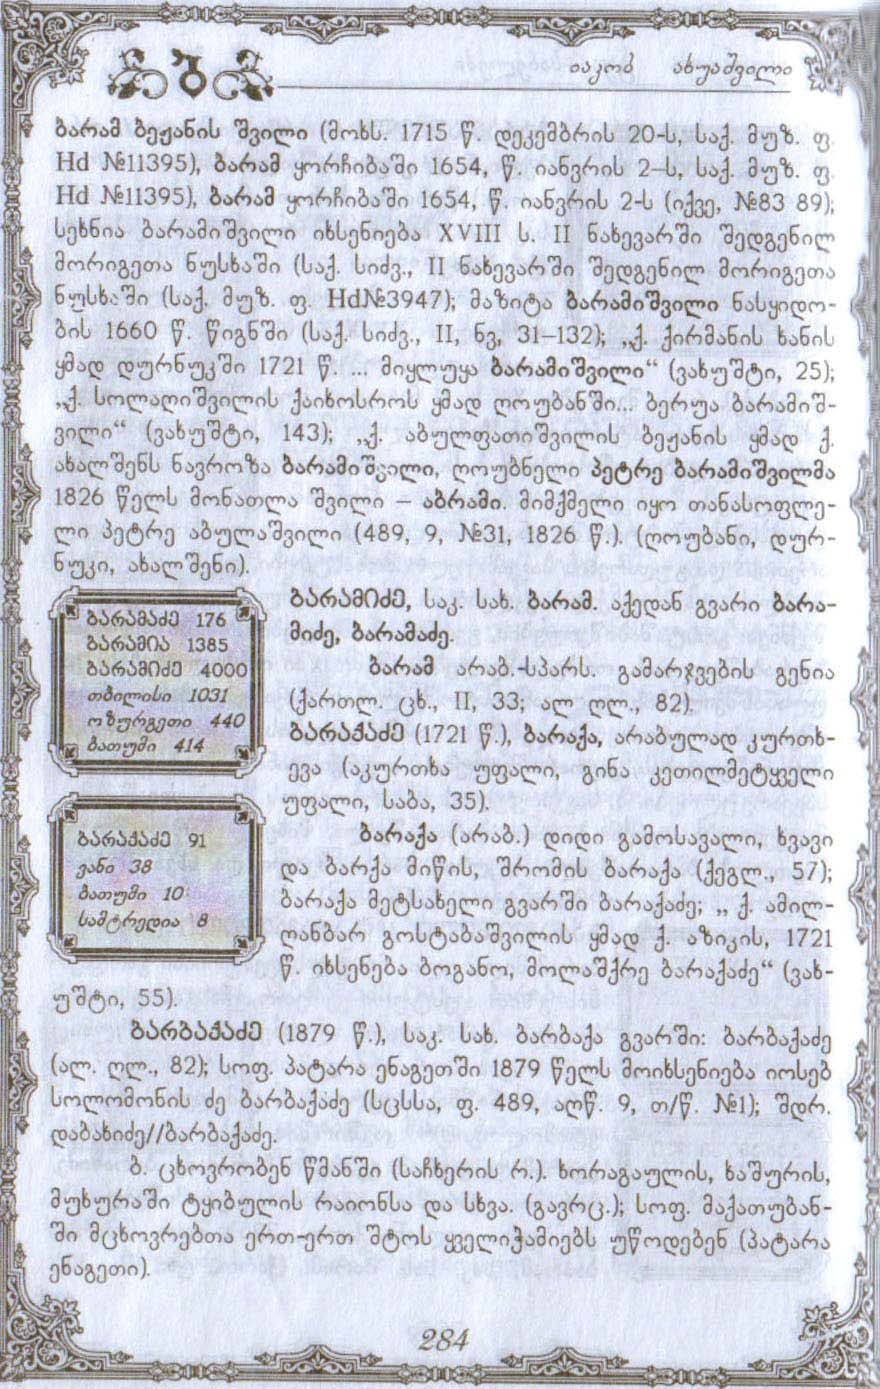 იაკობ ახუაშვილი
ბარამ ბეჟანის შვილი (მოხს. 1715 წ. დეკემბრის 20-ს, საქ. მუზ. ფ.
Hd №11395), ბარამ ყორჩიბაში 1654, წ. იანვრის 2–ს, საქ. მუზ. ფ.
Hd №11395), ბარამ ყორჩიბაში 1654, წ. იანვრის 2-ს (იქვე, №83 89);
სეხნია ბარამიშვილი იხსენიება XVIII ს. II ნახევარში შედგენილ
მორიგეთა ნუსხაში (საქ. სიძვ., II ნახევარში შედგენილ მორიგეთა
ნუსხაში (საქ. მუზ. ფ. Hd№3947); მაზიტა ბარამიშვილი ნასყიდო-
ბის 1660 წ. წიგნში (საქ. სიძვ., II, ნვ, 31–132); „ქ. ქირმანის ხანის
ყმად დურნუკში 1721 წ. ... მიყლუყა ბარამიშვილი“ (ვახუშტი, 25);
„ქ. სოლაღიშვილის ქაიხოსროს ყმად ღოუბანში... ბერუა ბარამიშ-
ვილი“ (ვახუშტი, 143); „ქ. აბულფათიშვილის ბეჟანის ყმად ქ.
ახალშენს ნავროზა ბარამიშვილი, ღოუბნელი პეტრე ბარამიშვილმა
1826 წელს მონათლა შვილი – აბრამი. მიმქმელი იყო თანასოფლე-
ლი პეტრე აბულაშვილი (489, 9, №31, 1826 წ.). (ღოუბანი, დურ-
ნუკი, ახალშენი).
ბარამაძე 176
ბარამია 1385
ბარამიძე 4000
თბილისი 1031
ოზურგეთი 440
ბათუმი 414
ბარამიძე, საკ. სახ. ბარამ. აქედან გვარი ბარა-
მიძე, ბარამაძე.
ბარამ არაბ.-სპარს. გამარჯვების გენია
(ქართლ. ცხ., II, 33; ალ ღლ., 82)
ბარაქაძე (1721 წ.), ბარაქა, არაბულად კურთხ-
ევა (აკურთხა უფალი, გინა კეთილმეტყველი
უფალი, საბა, 35).
ბარაქაძე 91
ვანი 38
ბათუმი 10
სამტრედია 8
ბარაქა (არაბ.) დიდი გამოსავალი, ხვავი
და ბარქა მიწის, შრომის ბარაქა (ქეგლ., 57);
ბარაქა მეტსახელი გვარში ბარაქაძე; „ ქ. ამილ-
ღანბარ გოსტაბაშვილის ყმად ქ. აზიკის, 1721
წ. იხსენება ბოგანო, მოლაშქრე ბარაქაძე“ (ვახ-
უშტი, 55).
ბარბაქაძე (1879 წ.), საკ. სახ. ბარბაქა გვარში: ბარბაქაძე
(ალ. ღლ., 82); სოფ. პატარა ენაგეთში 1879 წელს მოიხსენიება იოსებ
სოლომონის ძე ბარბაქაძე (სცსსა, ფ. 489, აღწ. 9, თ/წ. №1); შდრ.
დაბახიძე//ბარბაქაძე.
ბ. ცხოვრობენ წმანში (საჩხერის რ.). ხორაგაულის, ხაშურის,
მუხურაში ტყიბულის რაიონსა და სხვა. (გავრც.); სოფ. მაქათუბან-
ში მცხოვრებთა ერთ-ერთ შტოს ყველიჭამიებს უწოდებენ (პატარა
ენაგეთი).
284